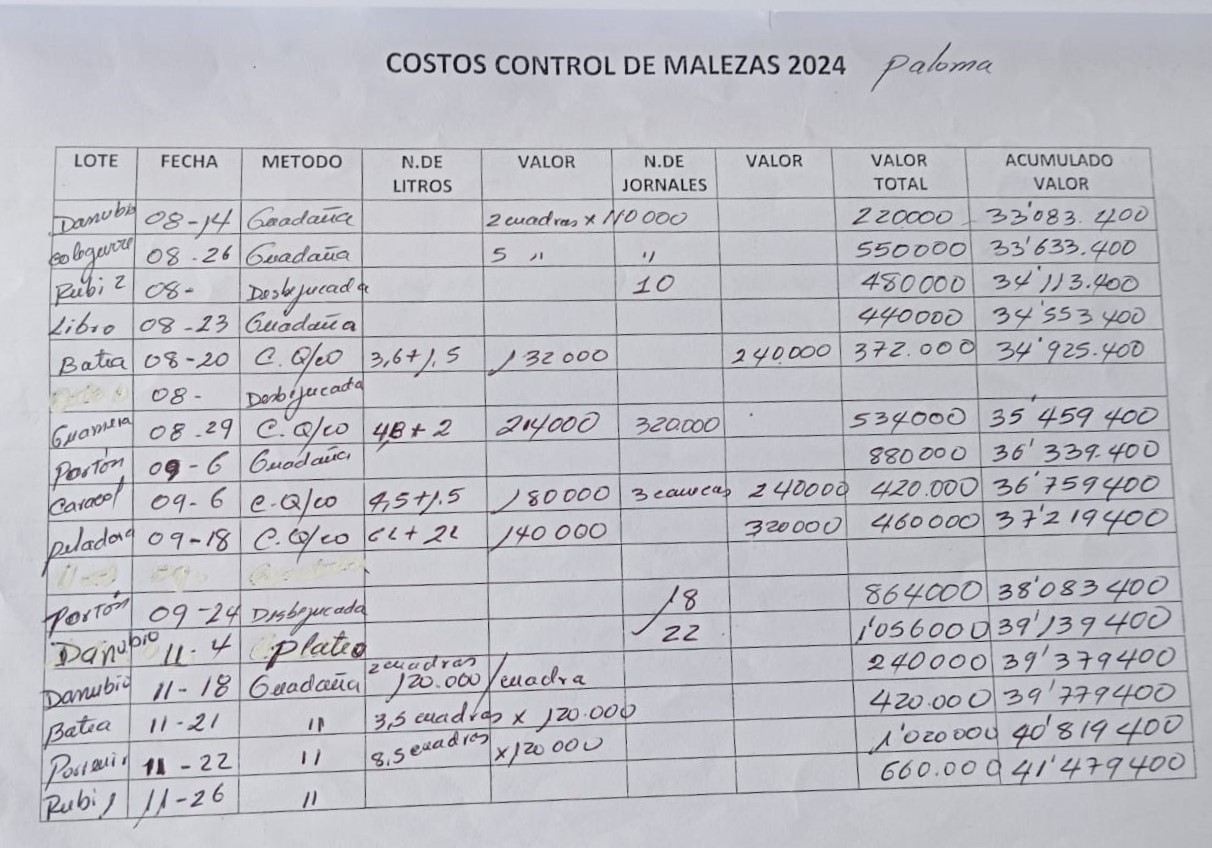 COSTOS CONTROL DE MALEZAS 2024 Paloma
LOTE FECHA METODO N.DE LITROS VALOR N.DE JORNALES VALOR VALOR TOTAL ACUMULADO VALOR
Danubio 08-14 Guadaña 2 cuadras x 110000 220000 33'083.400
08-26 Guadaña 5 " " 550000 33'633.400
Rubi 2 08- Desbejucada 10 480000 34'113.400
Libro 08-23 Guadaña 440000 34'553400
Batea 08-20 C. Q/co 3,6+1.5 132000 240.000 372.000 34'925.400
08- Desbejucada
08-29 C. Q/co 4B+2 214000 320.000 534000 35'459400
Portón 09-6 Guadaña 880000 36'339.400
Caracol 09-6 C. Q/co 4,5+1.5 180000 3 caucas 240000 420.000 36'759400
Peladora 09-18 C. Q/co 6L+2L 140000 320000 460000 37'219400
Portón 09-24 Desbejucada 18 864000 38'083400
Danubio 11-4 Plateo 22 1'056000 39'139400
Danubio 11-18 Guadaña 2 cuadras 120.000/cuadra 240000 39'379400
Batea 11-21 " 3,5 cuadras x 120.000 420.000 39'779400
11-22 " 8,5 cuadras x 120000 1'020000 40'819400
Rubi 1 11-26 " 660.000 41'479400